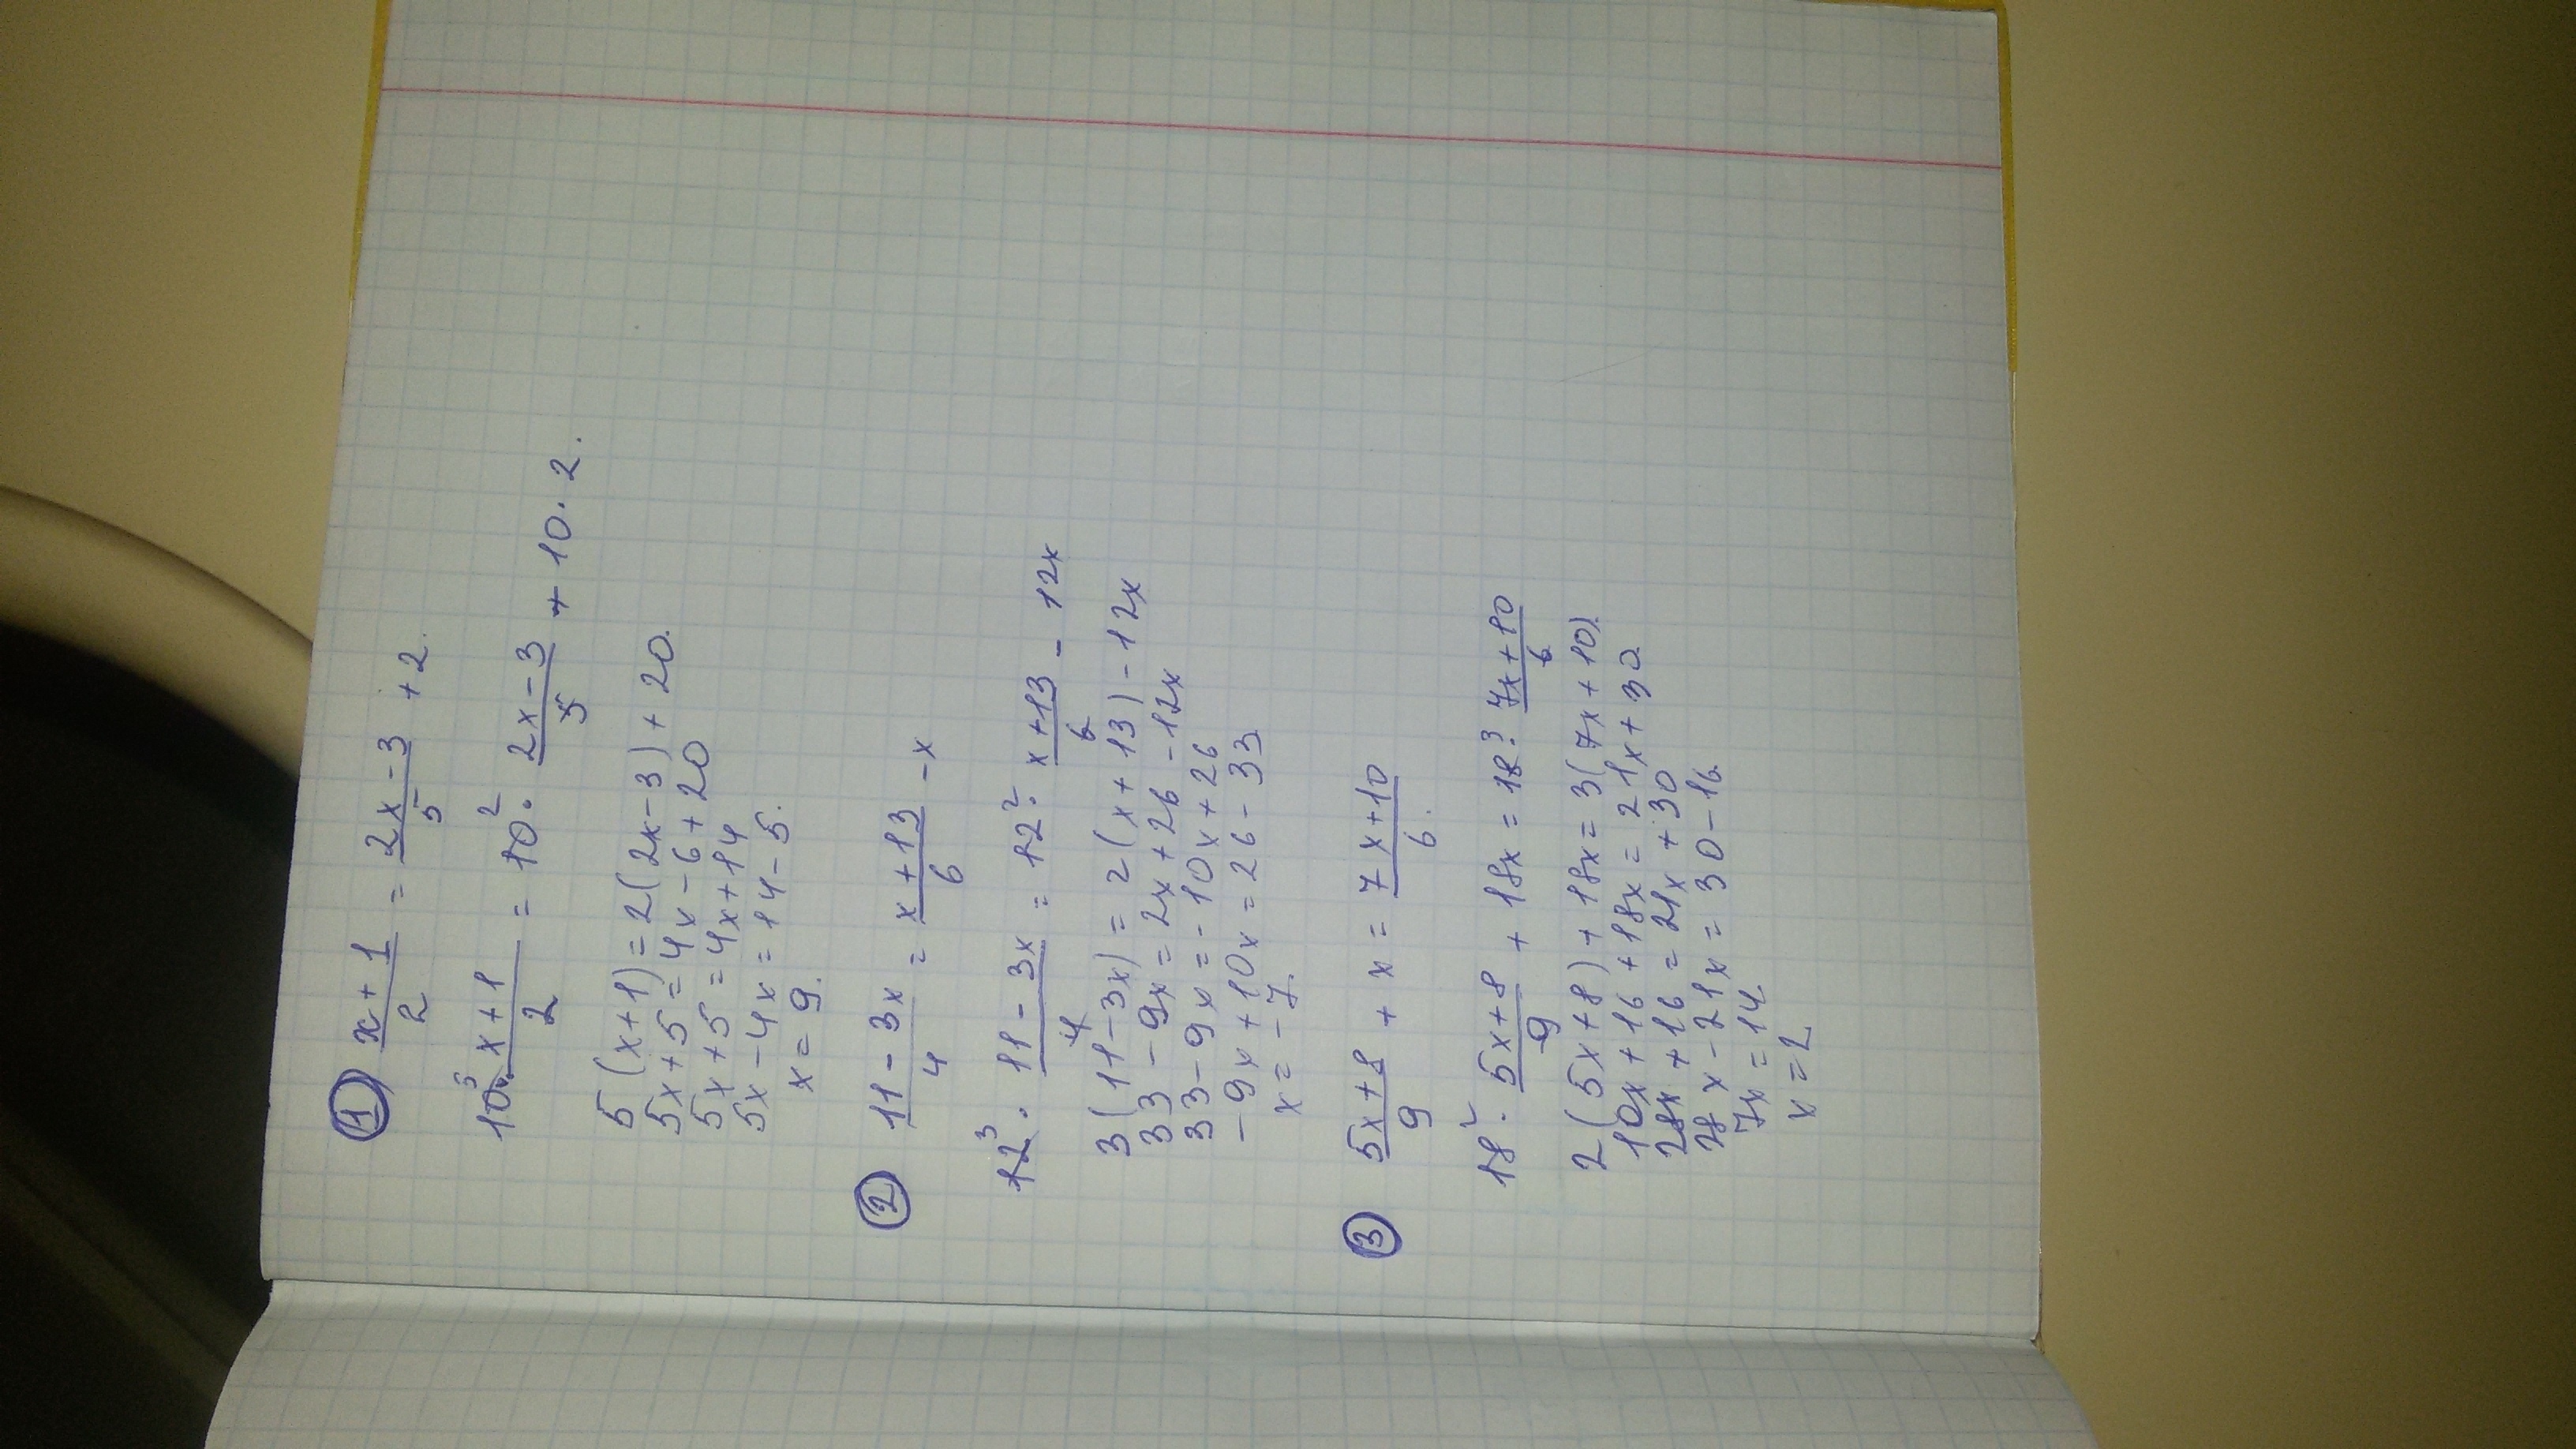 ① x+1/2 = 2x-3/5 + 2.
10⁵· x+1/2 = 10²· 2x-3/5 + 10·2.
5(x+1)=2(2x-3)+20.
5x+5=4x-6+20
5x+5=4x+14
5x-4x=14-5.
x=9.
② 11-3x/4 = x+13/6 -x
12³· 11-3x/4 = 12²· x+13/6 - 12x
3(11-3x)=2(x+13)-12x
33-9x=2x+26-12x
33-9x=-10x+26
-9x+10x=26-33
x=-7.
③ 5x+8/9 + x = 7x+10/6.
18²· 5x+8/9 + 18x = 18³ 7x+10/6
2(5x+8)+18x=3(7x+10).
10x+16+18x=21x+30
28x+16=21x+30
28x-21x=30-16.
7x=14.
x=2